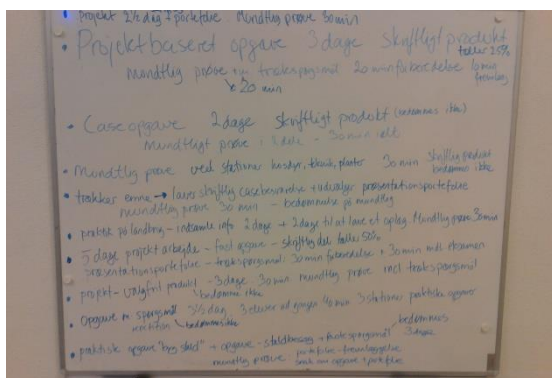 • projekt 2½ dag + portefølje. Mundtlig prøve 30 min
• Projektbaseret opgave 3 dage skriftligt produkt
tæller 25%
mundtlig prøve m trækspørgsmål 20 min forberedelse 10 min
20 min
• Case opgave 2 dage skriftligt produkt (bedømmes ikke)
Mundtligt prøve i dele - 30 min
• Mundtlig prøve ved stationer husdyr, teknik, planter 30 min skriftlig produkt
bedømmes ikke
• trækker emne → laver skriftlig casebesvarelse + udvælger præsentationsportefølje
mundtlig prøve 30 min - bedømmelse på mundtlig
• praktik på landbrug - indsamle info 2 dage + 2 dage til at lave et oplæg. Mundtlig prøve 30 min
• 5 dage projekt arbejde - fast opgave - skriftlig del tæller 50%
præsentationsportefølje - trækspørgsmål: 30 min forberedelse + 30 min mdl. eksamen
• projekt - valgfrit produkt - 3 dage 30 min mundtlig prøve incl trækspørgsmål
bedømmes ikke
• Opgave m spørgsmål 3½ dag 3 elever ad gangen 40 min 3 stationer praktiske opgaver
bedømmes ikke
• praktisk opgave "byg stald" + opgave - staldbesøg + trækspørgsmål
bedømmes
3 dage
mundtlig prøve portefølje - fremlæggelse